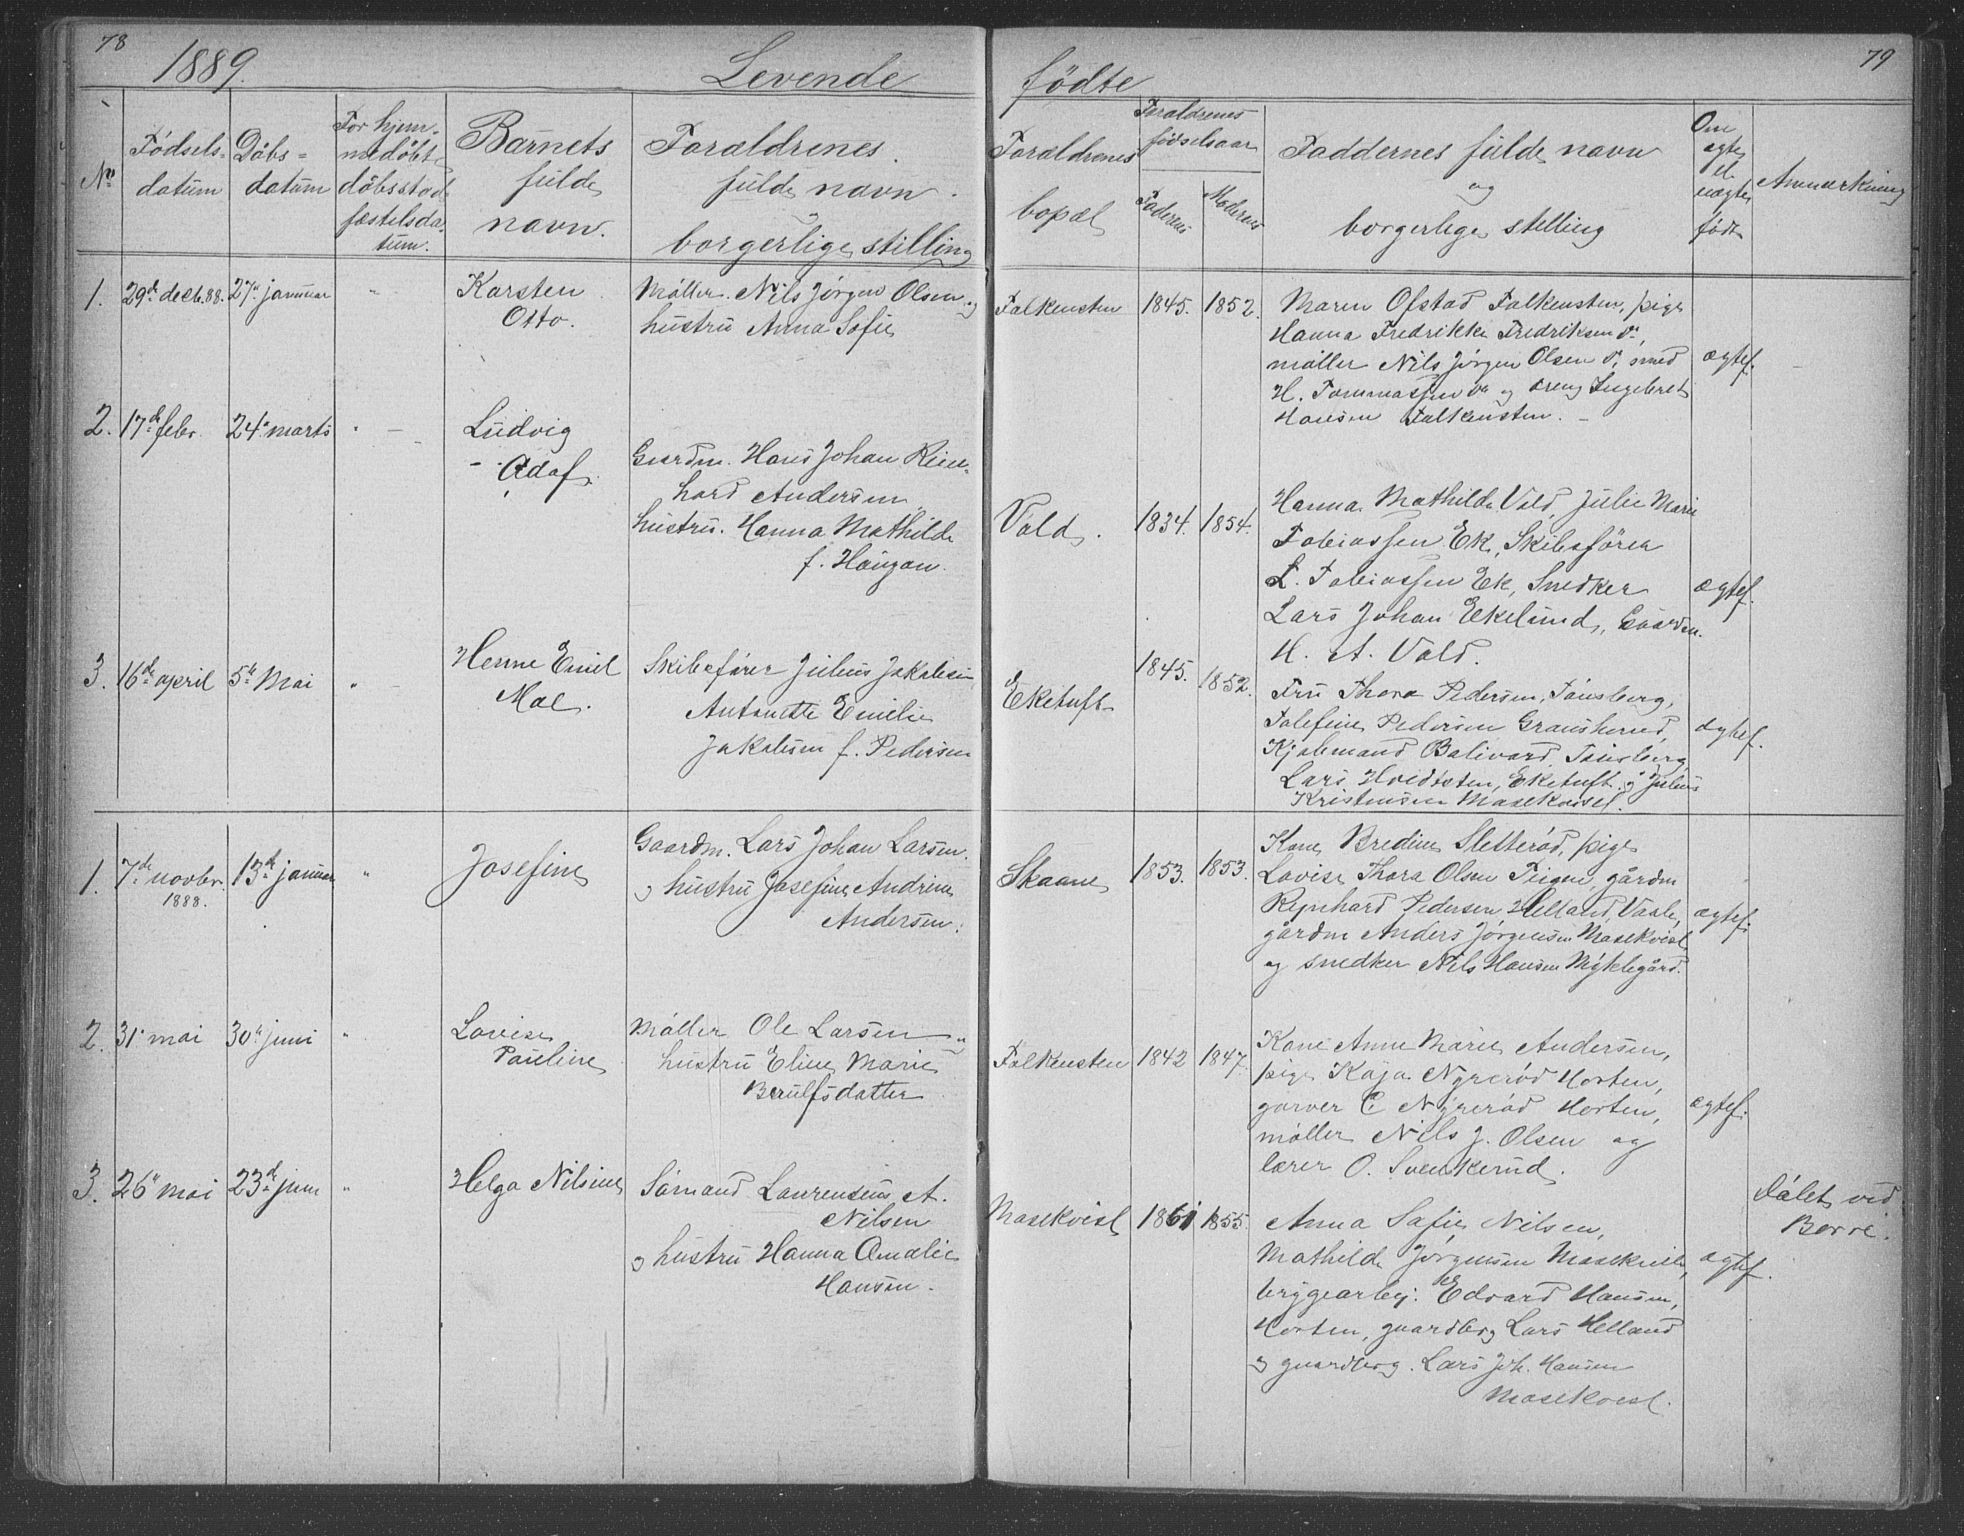 78
1889.
Levende
No
Fødsels-
datum
Døbs-
datum
For hjem-
medøbte
døbsstad
festelsda-
tum.
Barnets
fulde
navn.
Forældrenes
fulde navn
borgerlige stilling
1. 29de decb. 88. 27de januar " Karsten
Otto.
Møller Nils Jørgen Olsen og
hustru Anna Sofie
2. 17de febr. 24de marts " Ludvig
Adolf.
Gaardm. Hans Johan Rein-
hard Andersen
hustru. Hanna Mathilde
f. Haugan.
3. 16de april 5te Mai " Henne Emil
Mal.
Skibsfører Julius Jakobsen
Antonette Emilie
Jakobsen f. Pedersen
1. 7de novbr. 13de januar " Josefine
1888.
Gaardm. Lars Johan Larsen
og hustru Josefine Andrine
Andersen.
2. 31te mai 30te juni " Lovise
Pauline
Møller Ole Larsen
hustru Eline Marie
Berulfsdatter
3. 26de mai 23de juni " Helga Nilsine
Sømand Laurensius A.
Nilsen
og hustru Hanna Amalie
Hansen.
79
fødte
Forældrenes
bopæl
Forældrenes
fødselsaar
Faderens
Moderens
Faddernes fulde navn
og
borgerlige stilling
Om
ægte
el.
uægte
født
Anmærkning
Falkensten 1845. 1852. Maren Ofstad Falkensten, pige
Hanna Fredrikke Fredriksen do,
møller Nils Jørgen Olsen do, smed
H. Tommassen do og dreng Ingebret
Hansen Falkensten.
ægtef.
Vold. 1834. 1854. Hanna Mathilde Vold, Julie Marie
Tobiassen Ek, Skibsfører
L. Tobiassen Ek, Snedker
Lars Johan Ekelund, Gaardm.
H. A. Vold.
ægtef.
Eketuft 1845. 1852. Fru Thora Pedersen, Tønsberg,
Josefine Pedersen Granherud,
Kjøbmand Bolivard Tønsberg
Lars Hvidtsten, Eketuft og Julius
Kristensen Masekvist.
ægtef.
Skaane 1853. 1853. Kone Bredine Sletterød, pige
Lovise Thora Olsen Teigne, gårdm
Reinhard Pedersen Helland, Vaale,
gårdm Anders Jørgensen Masekvist
og snedker Nils Hansen Myklegård.
ægtef.
Falkensten 1842 1847. Kone Anne Marie Andersen,
pige Kaja Nyrerød Horten,
garver C. Nyrerød Horten,
møller Nils J. Olsen og
lærer O. Svenkerud.
ægtef.
Masekvist 1861 1855. Anna Sofie Nilsen,
Mathilde Jørgensen Masekvist,
bryggearbej. Edvard Hansen,
Horten, gaardbrg Lars Helland
og gaardbrg. Lars Joh. Hansen
Masekvist.
ægtef.
Døbt ved
Borre.